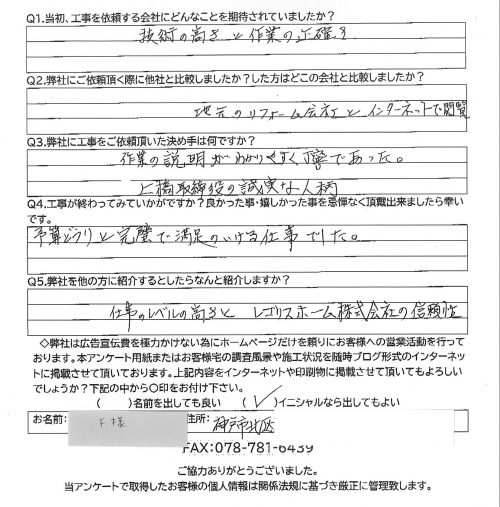 Q1.当初、工事を依頼する会社にどんなことを期待されていましたか？
技術の高さと作業の正確さ
Q2.弊社にご依頼頂く際に他社と比較しましたか？した方はどこの会社と比較しましたか？
地元のリフォーム会社とインターネットで閲覧
Q3.弊社に工事をご依頼頂いた決め手は何ですか？
作業の説明がわかりやすく丁寧であった。
上橋取締役の誠実な人柄
Q4.工事が終わってみていかがですか？良かった事・嬉しかった事を忌憚なく頂戴出来ましたら幸い
です。
予算どうりと完璧で満足のいける仕事でした。
Q5.弊社を他の方に紹介するとしたらなんと紹介しますか？
仕事のレベルの高さと レゴリスホーム株式会社の信頼性
◇弊社は広告宣伝費を極力かけない為にホームページだけを頼りにお客様への営業活動を行って
おります。本アンケート用紙またはお客様宅の調査風景や施工状況を随時ブログ形式のインターネッ
トに掲載させて頂いております。上記内容をインターネットや印刷物に掲載させて頂いてもよろしい
でしょうか？下記の中から〇印をお付け下さい。
( )名前を出しても良い (✓)イニシャルなら出してもよい
お名前: F様 住所: 神戸市北区
FAX:078-781-6439
ご協力ありがとうございました。
当アンケートで取得したお客様の個人情報は関係法規に基づき厳正に管理致します。